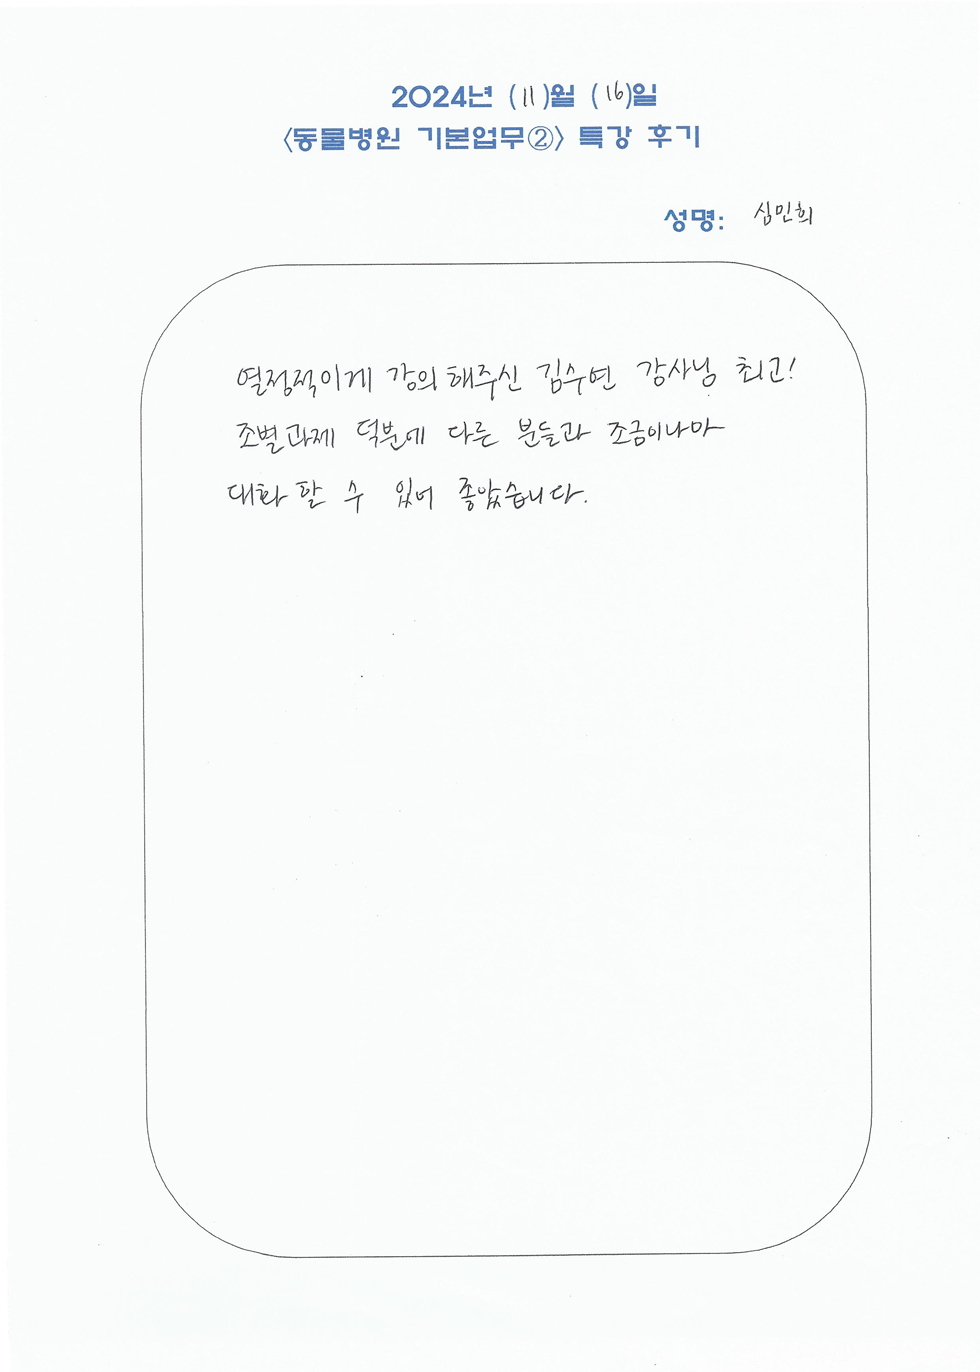 2024년 (11)월 (16)일
<동물병원 기본업무②> 특강 후기
성명: 심민희
열정적이게 강의해주신 김수연 강사님 최고!
조별과제 덕분에 다른 분들과 조금이나마
대화 할 수 있어 좋았습니다.